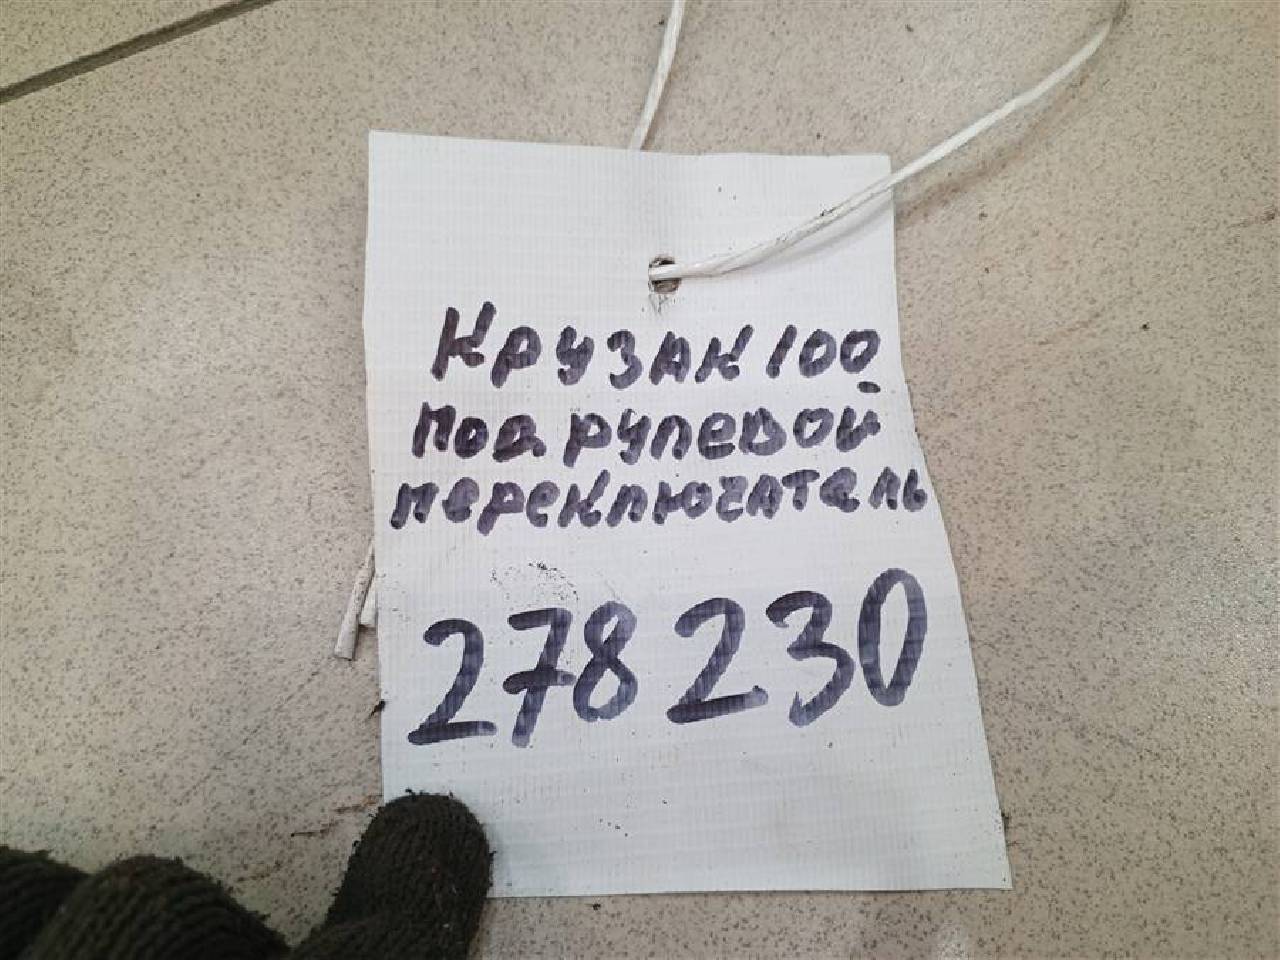 Крузак 100
Под рулевой
переключатель
278 230